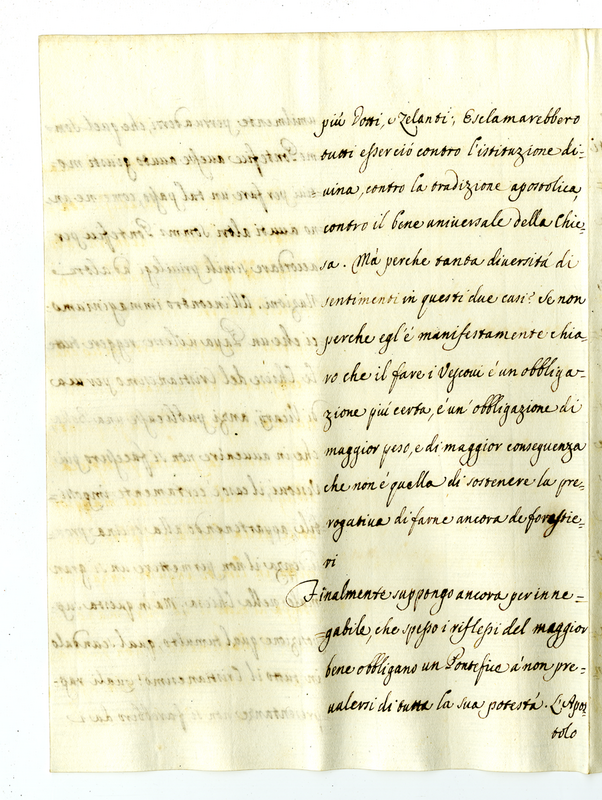 più dotti, e Zelanti; Esclamarebbero
tutti esserciò contro l'istituzione di=
uina, contro la tradizione apostolica,
contro il bene uniuersale della Chie=
sa. Mà perche tanta diuersitá di
sentimenti in questi due casi? Se non
perche egl'é manifestamente chia=
ro che il fare i Vescoui é un obbliga=
zione piú certa, é un' obbligazione di
maggior peso, e di maggior conseguenza
che non é quella di sostenere la pre=
rogatiua di farne ancora de forestie=
ri
Finalmente suppongo ancora per inne=
=gabile, che spesso i riflessi del maggior
bene obbligano un Pontefice á non pre=
ualersi di tutta la sua potestá. L'Apos=
tolo